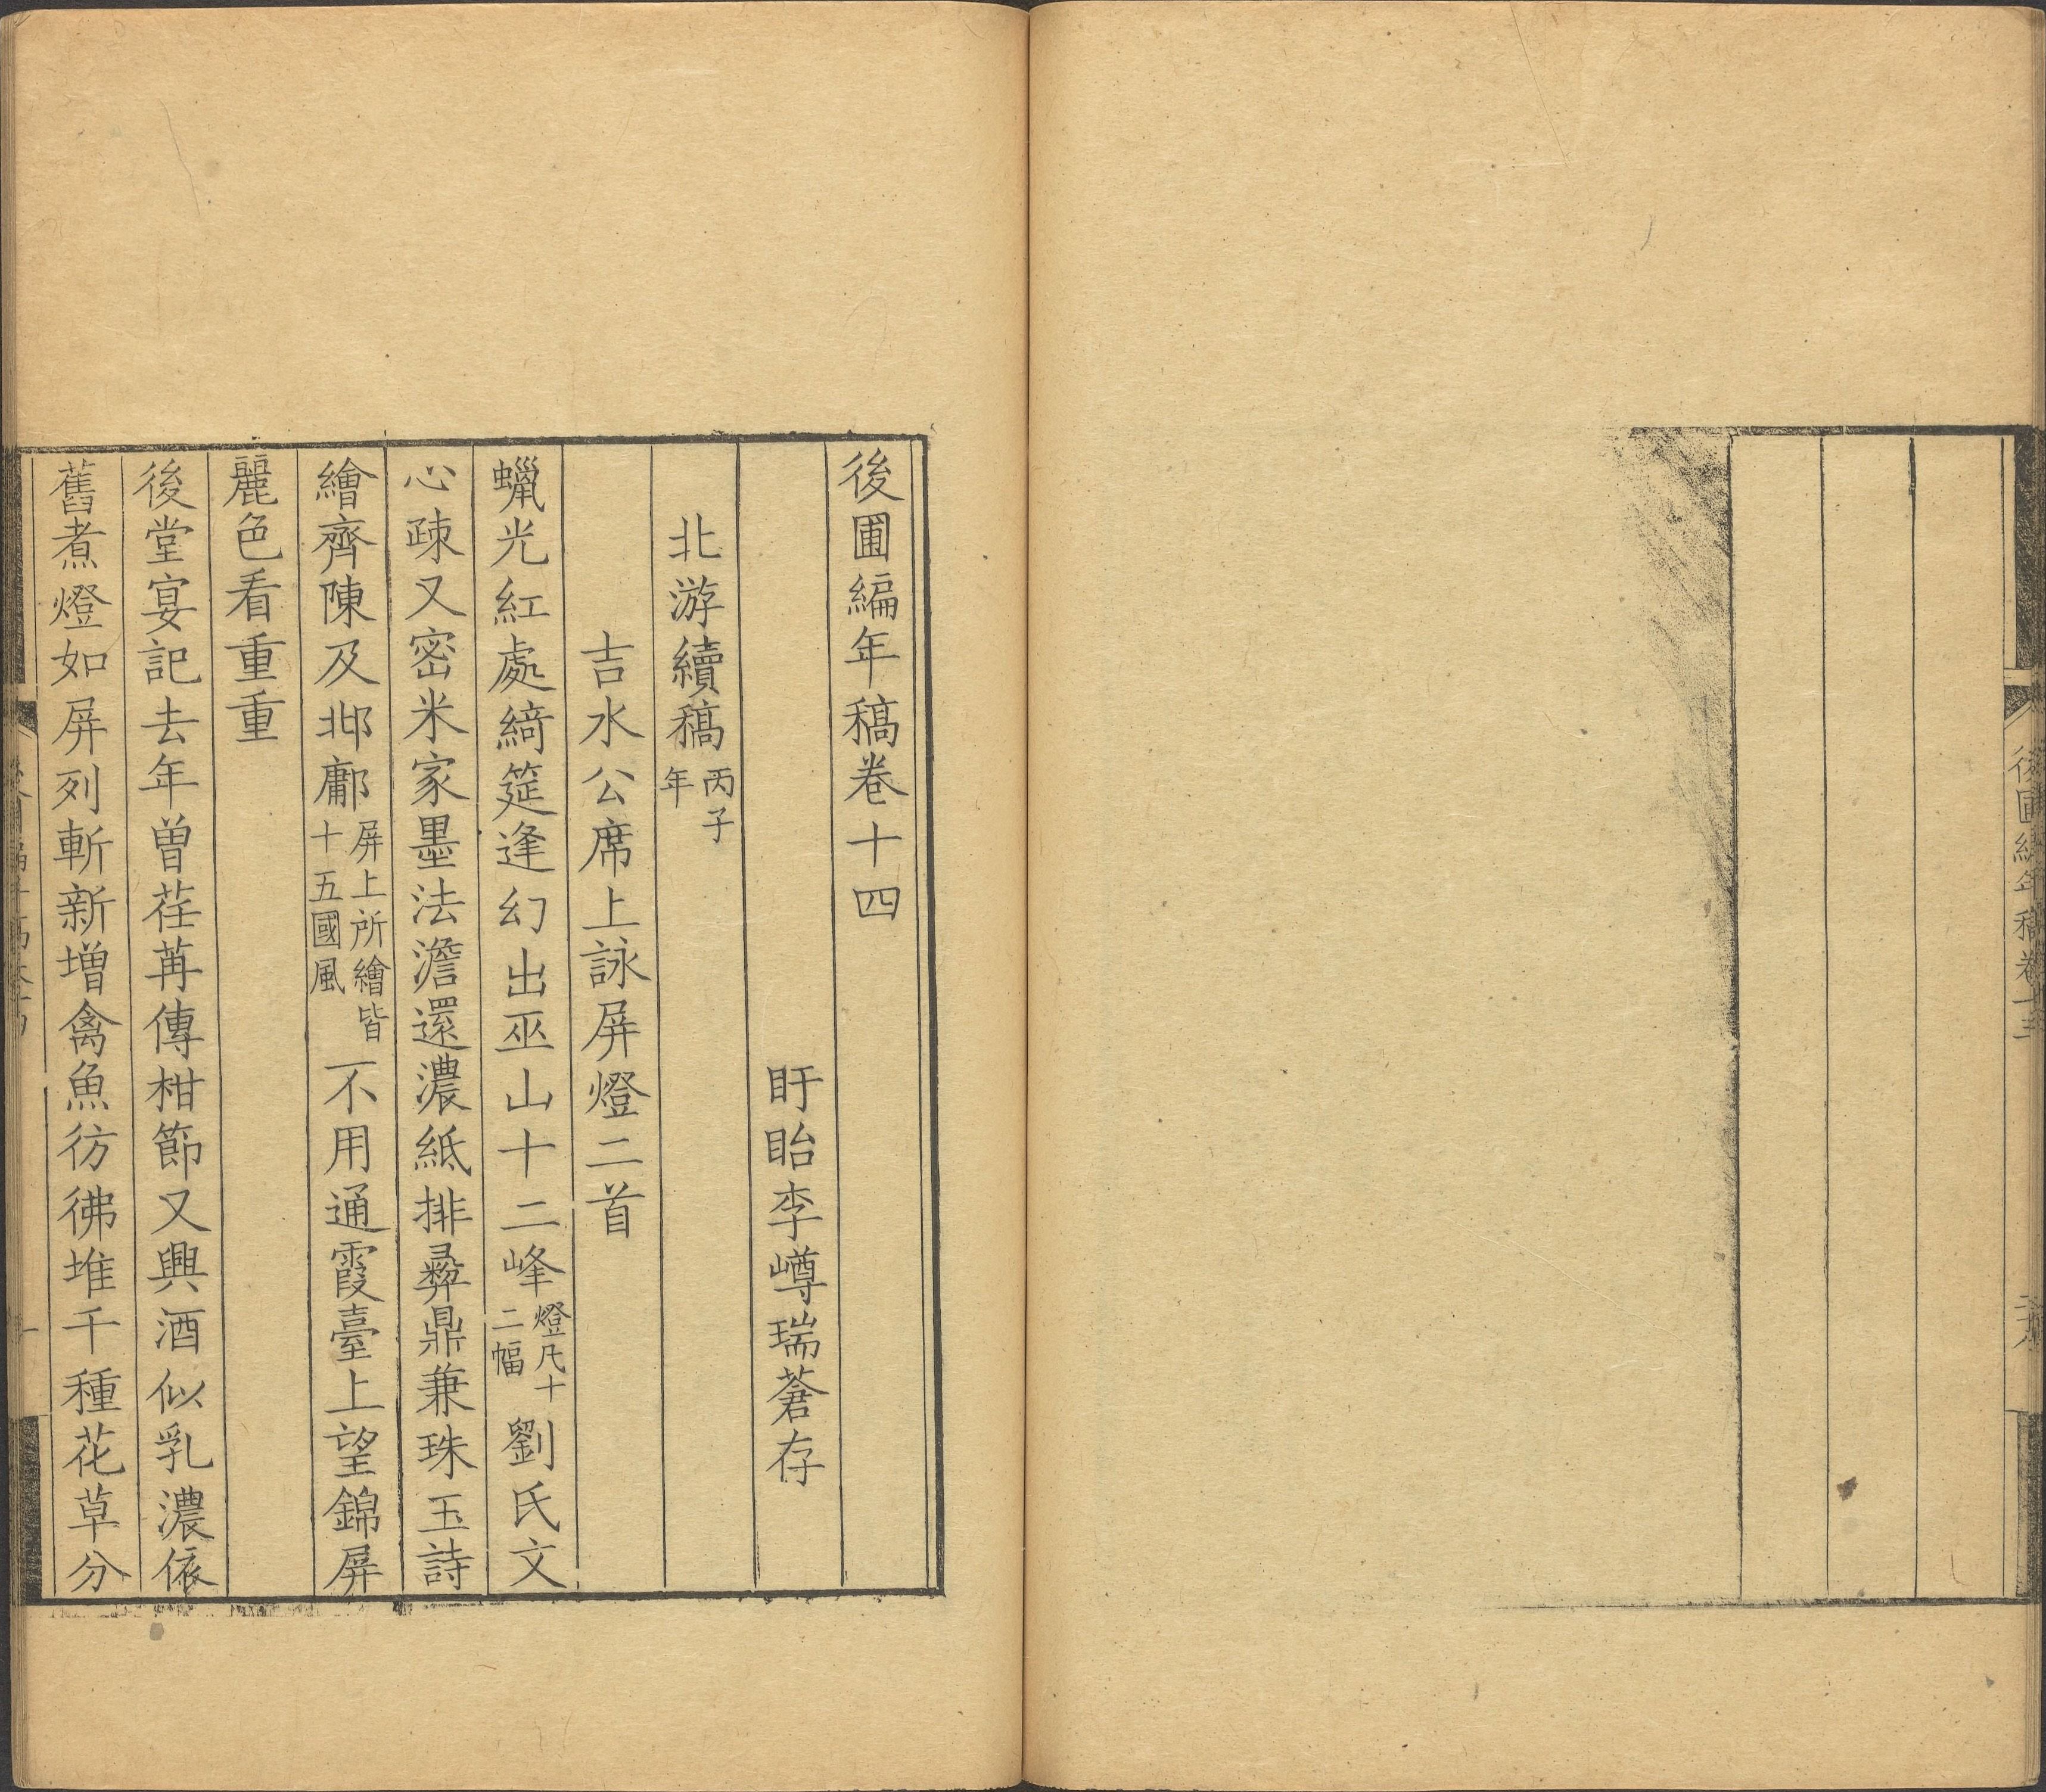 後圃編年稿卷十三
後圃編年稿卷十四
盱眙李嶟瑞蒼存
北游續稿丙子年
吉水公席上詠屏燈二首
蠟光紅處綺筵逢幻出巫山十二峰燈凡十二幅劉氏文
心疎又密米家墨法澹還濃紙排彛鼎兼珠玉詩
繪齊陳及邶鄘屏上所繪皆十五國風不用通霞臺上望錦屏
麗色看重重
後堂宴記去年曾荏苒傳柑節又興酒似乳濃依
舊煮燈如屏列斬新增禽魚彷彿堆千種花草分